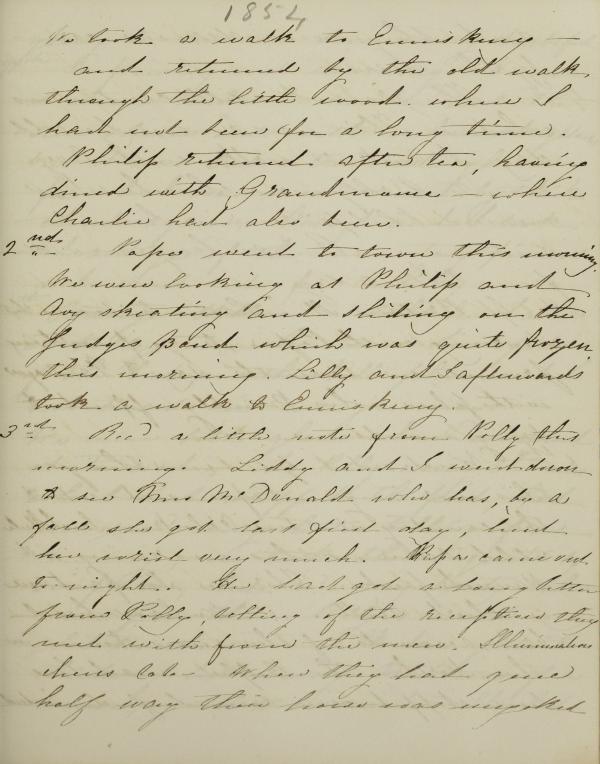 1854
We took a walk to Enniskerry —
and returned by the old walk,
through the little wood. where I
had not been for a long time.
Philip returned after tea, having
dined with Grandmama — where
Charlie had also been.
2nd Papa went to town this morning.
We were looking at Philip and
Avy skeating and sliding on the
Judges Pond which was quite frozen,
this morning. Lilly and I afterwards
took a walk to Enniskerry.
3rd Recd a little note from Polly this
morning. Liddy and I went down
to see Mrs McDonald who has, by a
fall she got last frost day, hurt
her wrist very much. Papa came out
to night. He had got a long letter
from Polly, telling of the reception they
met with from the men. Illuminations
cheers &c &c When they had gone
half way their horse was unyoked